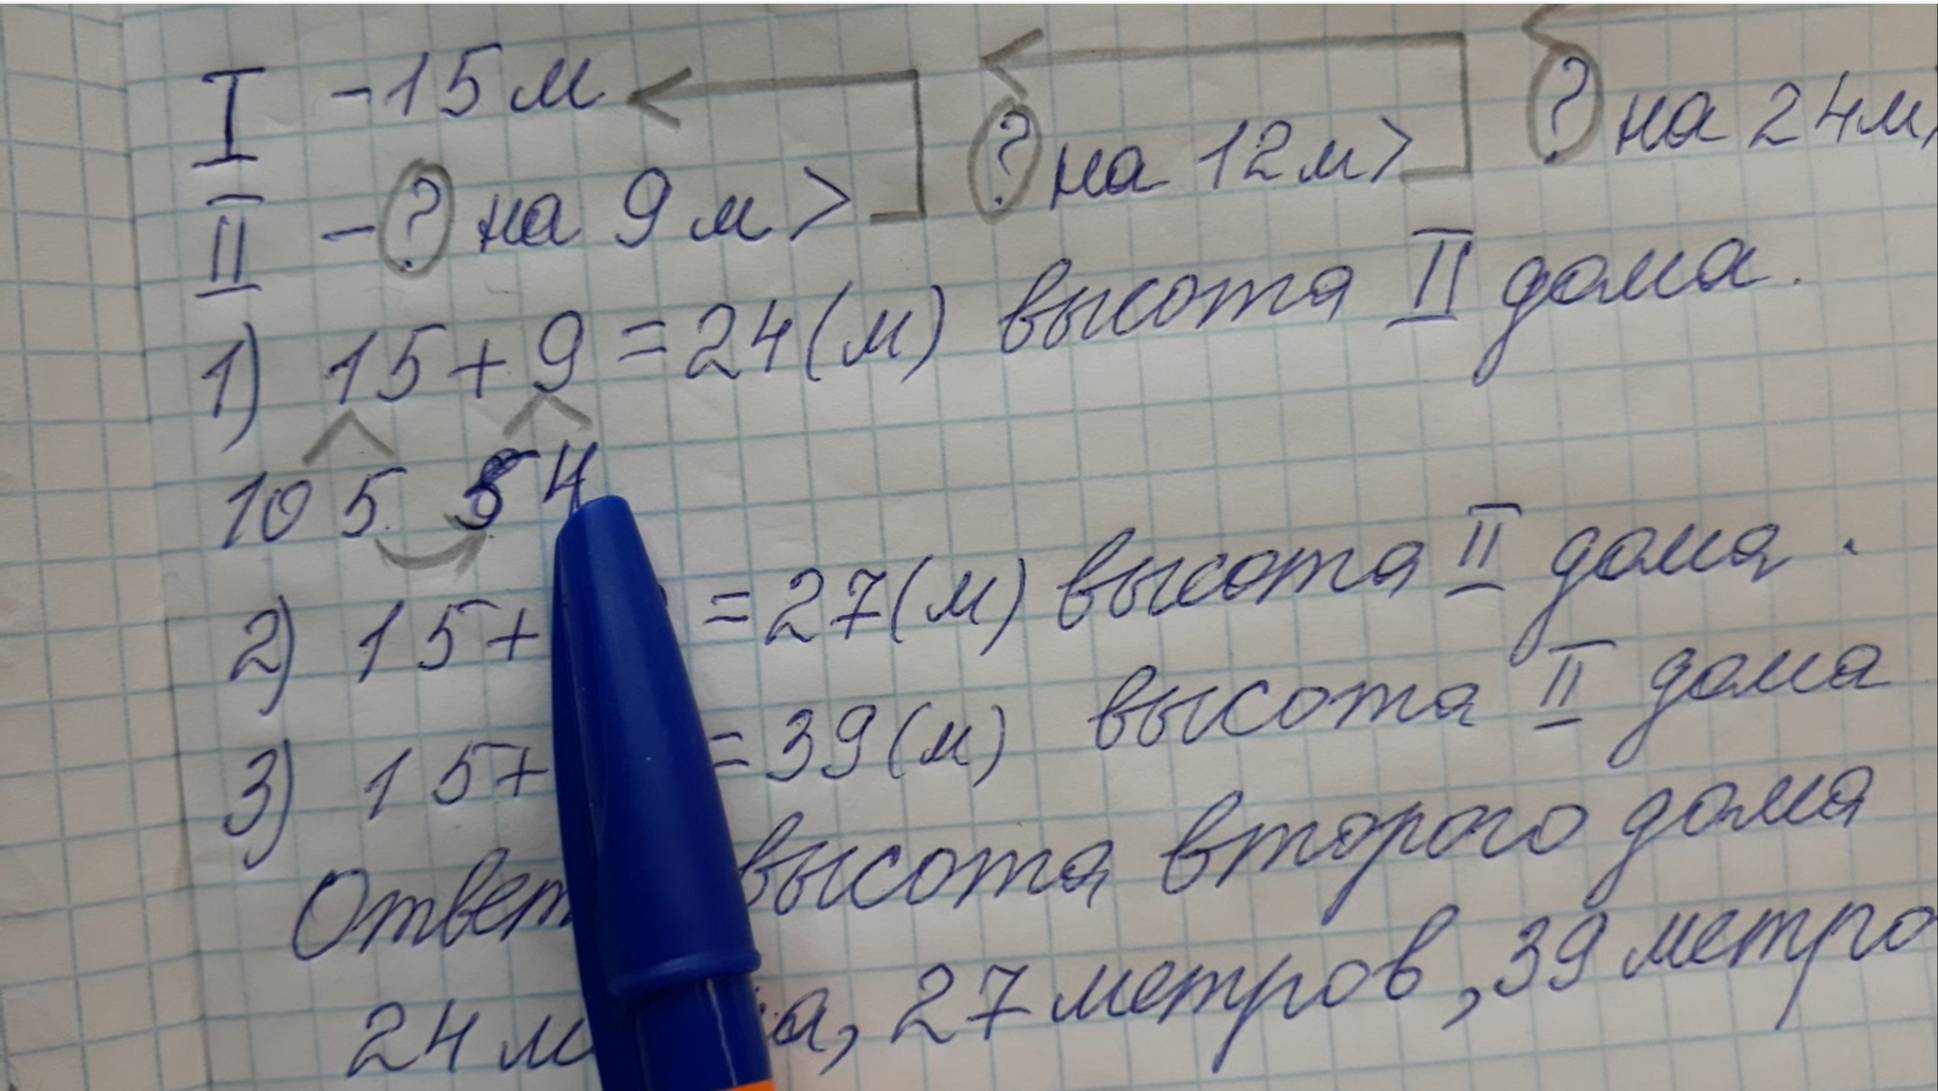 I - 15 м
II - ? на 9 м > ? на 12 м > ? на 24 м
1) 15 + 9 = 24 (м) высота II дома.
10 5 5 4
2) 15 + = 27 (м) высота II дома.
3) 15 + = 39 (м) высота II дома
Ответ высота второго дома
24 м а, 27 метров, 39 метро